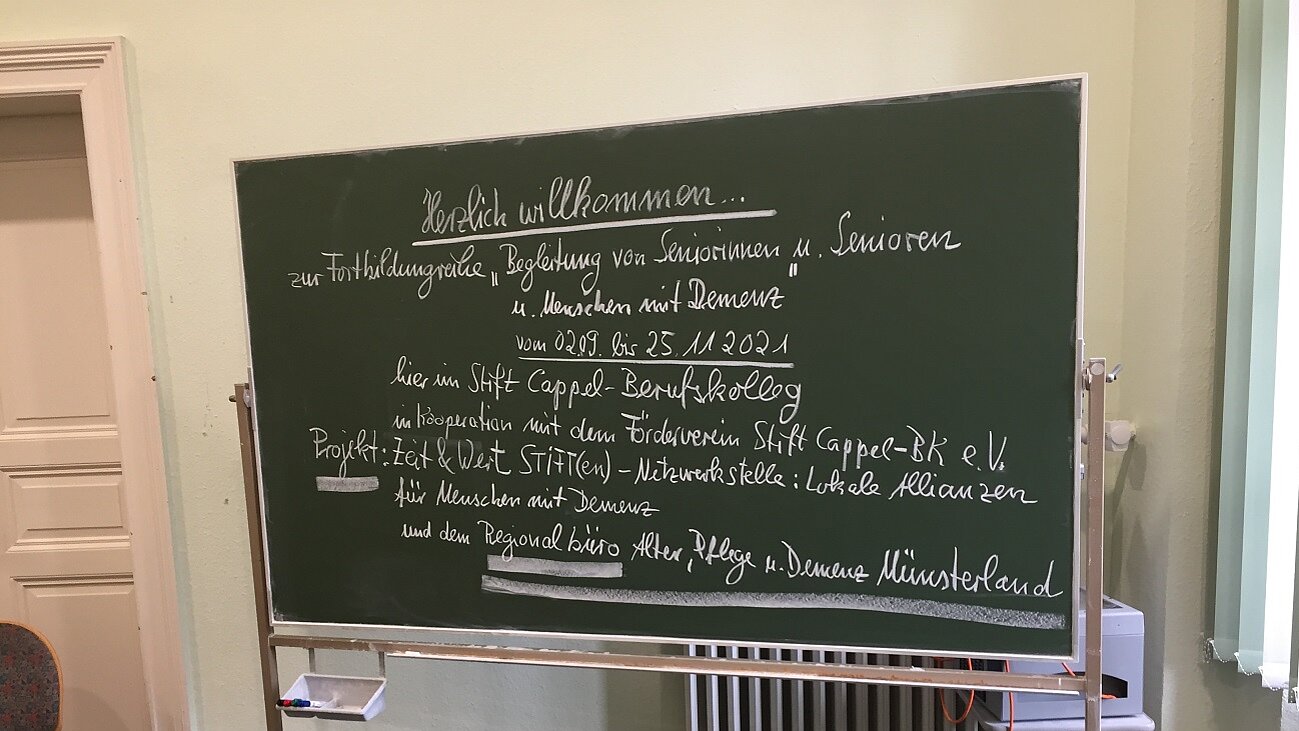 Herzlich willkommen...
zur Fortbildungreihe „Begleitung von Seniorinnen u. Senioren
u. Menschen mit Demenz"
vom 02.09. bis 25.11 2021
hier im Stift Cappel-Berufskolleg
in Kooperation mit dem Förderverein Stift Cappel-BK e.V.
Projekt: Zeit & Wert STIFT(en) - Netzwerkstelle: Lokale Allianzen
für Menschen mit Demenz
und dem Regionalbüro Alter, Pflege u. Demenz Münsterland